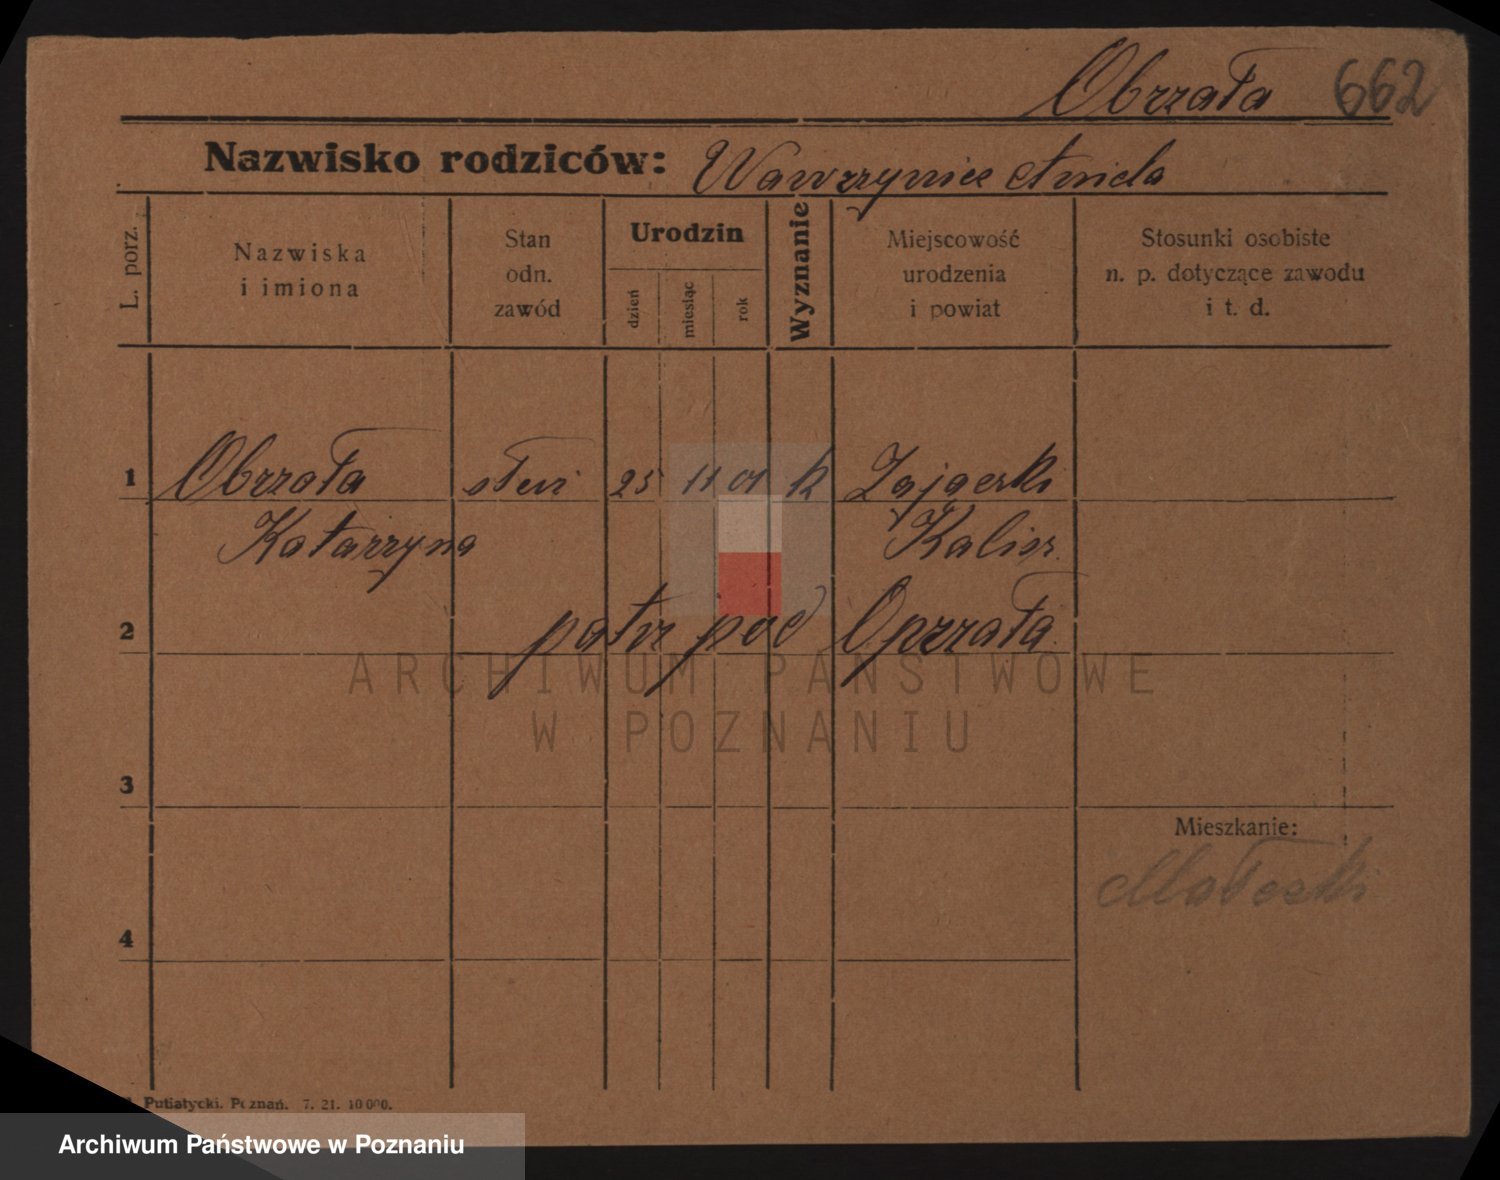 Obrzała 662
Nazwisko rodziców: Wawrzyniec Aniela
L. porz.
Nazwiska i imiona
Stan odn. zawód
Urodzin
dzień miesiąc rok
Wyznanie
Miejscowość urodzenia i powiat
Stosunki osobiste n. p. dotyczące zawodu i t. d.
1 Obrzała 25 11 01 k Zajączki
Katarzyna Kalisz
2 patrz pod Oprzała
ARCHIWUM PAŃSTWOWE
W POZNANIU
3
Mieszkanie:
4
Putiatycki. Poznań. 7. 21. 10 000.
Archiwum Państwowe w Poznaniu